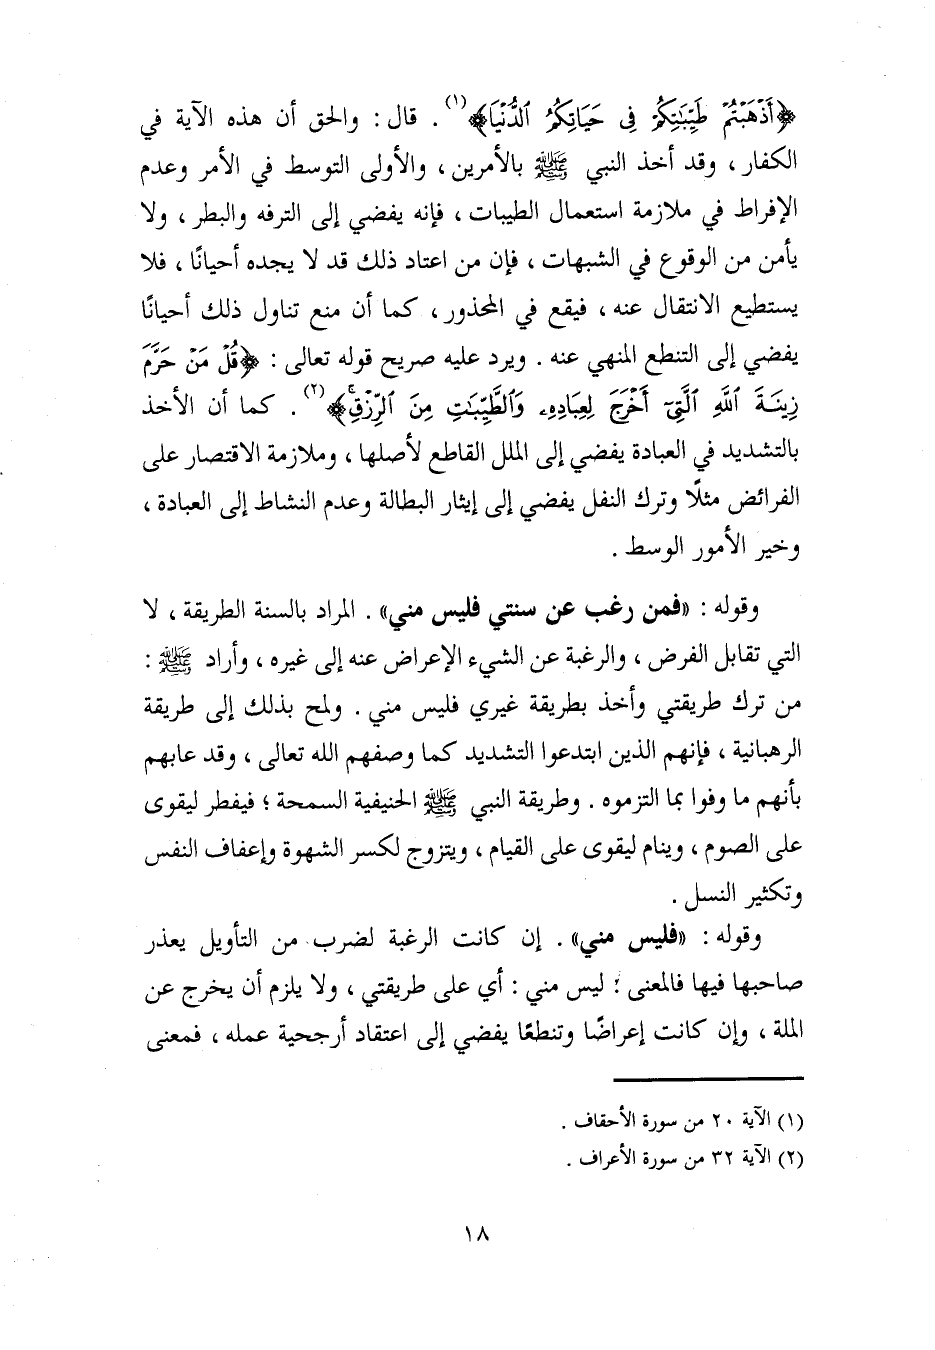 ﴿أَذْهَبْتُمْ طَيِّبَاتِكُمْ فِى حَيَاتِكُمُ ٱلدُّنْيَا﴾(١) . قال : والحق أن هذه الآية في
الكفار ، وقد أخذ النبي ﷺ بالأمرين ، والأولى التوسط في الأمر وعدم
الإفراط في ملازمة استعمال الطيبات ، فإنه يفضي إلى الترفه والبطر ، ولا
يأمن من الوقوع في الشبهات ، فإن من اعتاد ذلك قد لا يجده أحيانًا ، فلا
يستطيع الانتقال عنه ، فيقع في المحذور ، كما أن منع تناول ذلك أحيانًا
يفضي إلى التنطع المنهي عنه . ويرد عليه صريح قوله تعالى : ﴿قُلْ مَنْ حَرَّمَ
زِينَةَ ٱللَّهِ ٱلَّتِىٓ أَخْرَجَ لِعِبَادِهِۦ وَٱلطَّيِّبَٰتِ مِنَ ٱلرِّزْقِۚ﴾(٢) . كما أن الأخذ
بالتشديد في العبادة يفضي إلى الملل القاطع لأصلها ، وملازمة الاقتصار على
الفرائض مثلًا وترك النفل يفضي إلى إيثار البطالة وعدم النشاط إلى العبادة ،
وخير الأمور الوسط .
وقوله : «فمن رغب عن سنتي فليس مني» . المراد بالسنة الطريقة ، لا
التي تقابل الفرض ، والرغبة عن الشيء الإعراض عنه إلى غيره ، وأراد ﷺ :
من ترك طريقتي وأخذ بطريقة غيري فليس مني . ولمح بذلك إلى طريقة
الرهبانية ، فإنهم الذين ابتدعوا التشديد كما وصفهم الله تعالى ، وقد عابهم
بأنهم ما وفوا بما التزموه . وطريقة النبي ﷺ الحنيفية السمحة ؛ فيفطر ليقوى
على الصوم ، وينام ليقوى على القيام ، ويتزوج لكسر الشهوة وإعفاف النفس
وتكثير النسل .
وقوله : «فليس مني» . إن كانت الرغبة لضرب من التأويل يعذر
صاحبها فيها فالمعنى ؛ ليس مني : أي على طريقتي ، ولا يلزم أن يخرج عن
الملة ، وإن كانت إعراضًا وتنطعًا يفضي إلى اعتقاد أرجحية عمله ، فمعنى
(١) الآية ٢٠ من سورة الأحقاف .
(٢) الآية ٣٢ من سورة الأعراف .
١٨